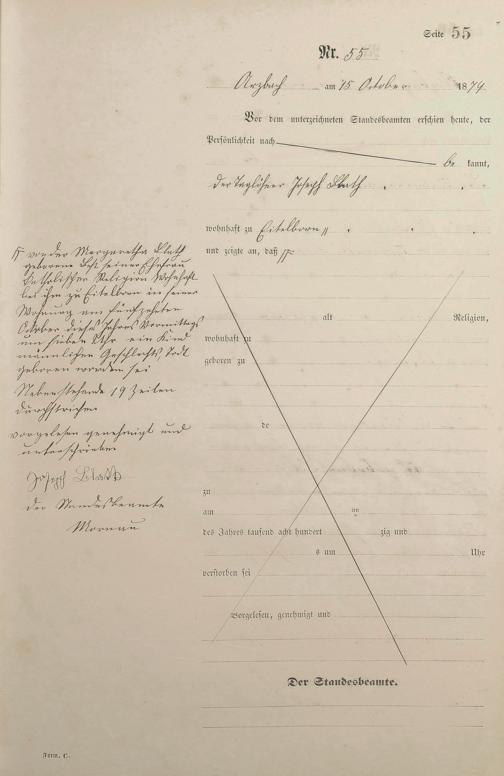 Seite 55
Nr. 55
Arzbach am 15 October 1874
Vor dem unterzeichneten Standesbeamten erschien heute, der
Persönlichkeit nach
be kannt,
der Taglöhner Joseph Blath
wohnhaft zu Eitelborn
und zeigte an, daß
von der Margaretha Blath
geborene seiner Ehefrau
katholischer Religion wohnhaft
bei ihm zu Eitelborn in seiner
Wohnung am fünfzehnten
October dieses Jahres Vormittags
um sieben Uhr ein Kind
männlichen Geschlechts, todt
geboren worden sei
Nebenstehende 19 Zeilen
durchstrichen
vorgelesen genehmigt und
unterschrieben
Joseph Blath
der Standesbeamte
alt Religion,
wohnhaft zu
geboren zu
de
zu
am im
des Jahres tausend acht hundert zig und
s um Uhr
verstorben sei
Vorgelesen, genehmigt und
Der Standesbeamte.
Form. C.